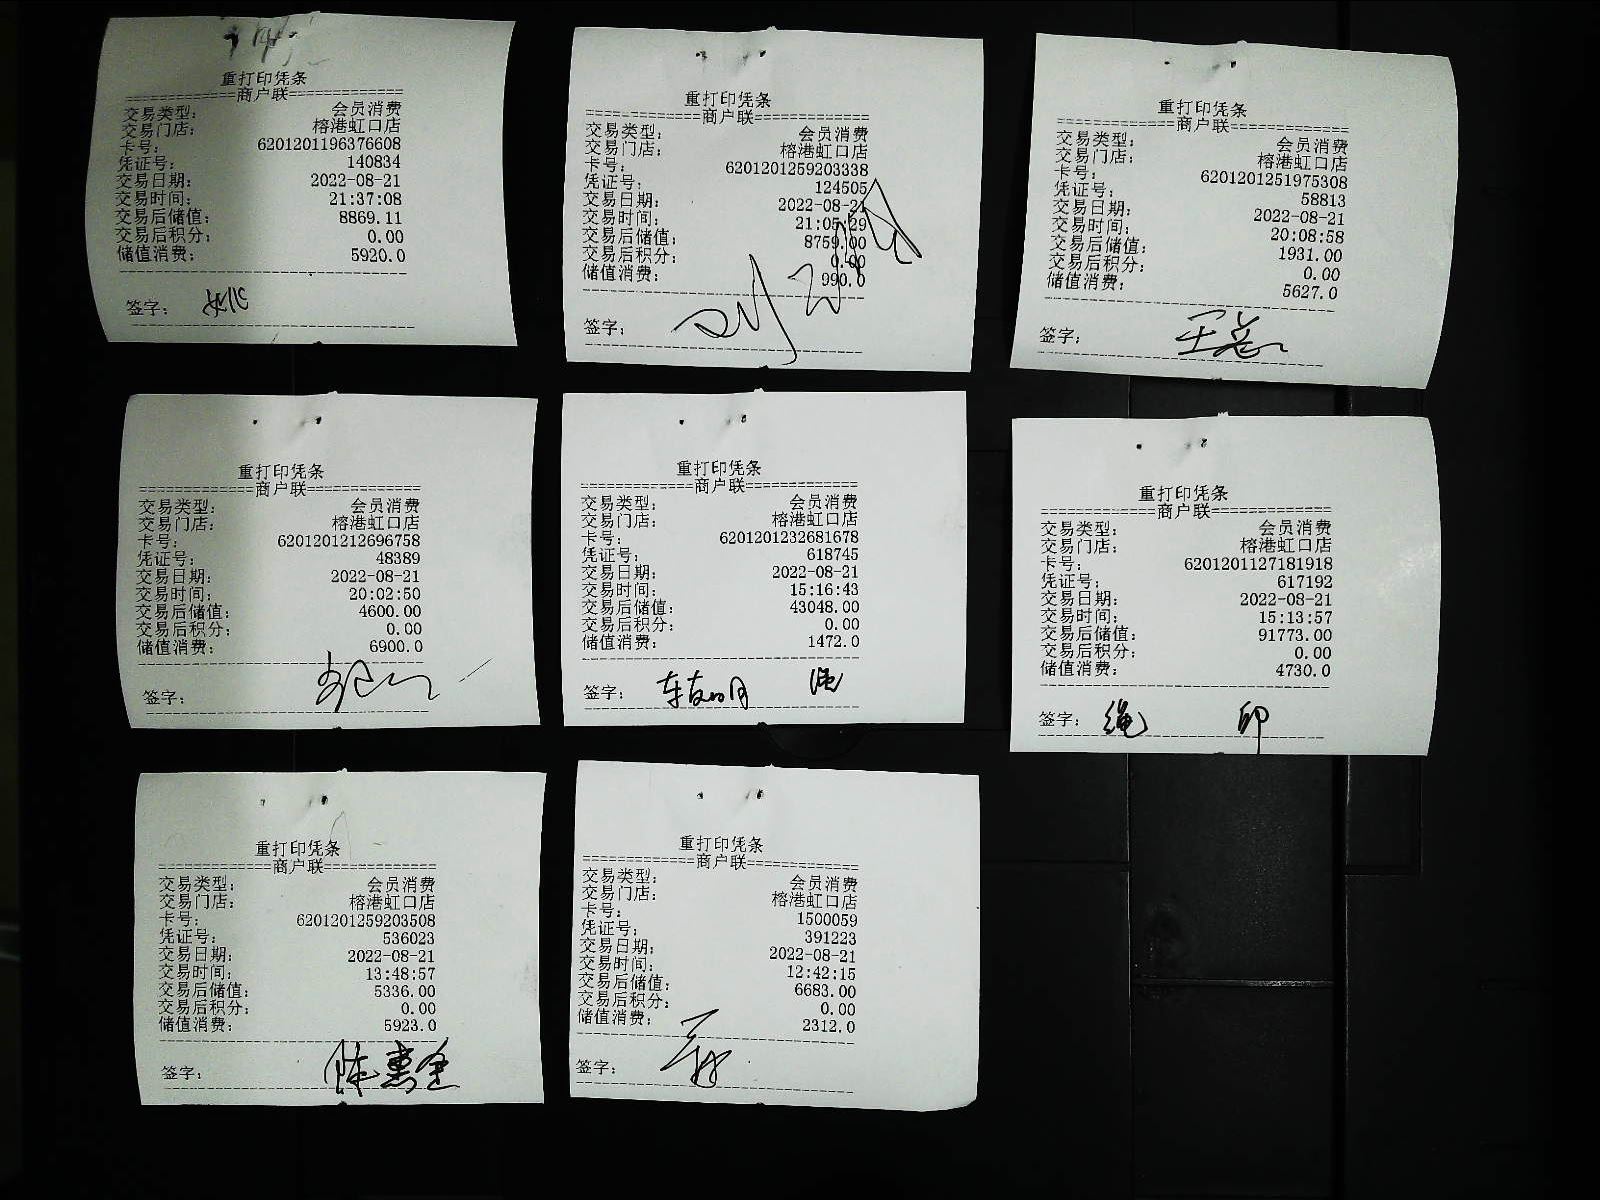 重打印凭条
============商户联============
交易类型: 会员消费
交易门店: 榕港虹口店
卡号: 6201201196376608
凭证号: 140834
交易日期: 2022-08-21
交易时间: 21:37:08
交易后储值: 8869.11
交易后积分: 0.00
储值消费: 5920.0
签字:
重打印凭条
============商户联============
交易类型: 会员消费
交易门店: 榕港虹口店
卡号: 6201201259203338
凭证号: 124505
交易日期: 2022-08-21
交易时间: 21:05:29
交易后储值: 8759.00
交易后积分: 0.00
储值消费: 990.0
签字:
重打印凭条
============商户联============
交易类型: 会员消费
交易门店: 榕港虹口店
卡号: 6201201251975308
凭证号: 58813
交易日期: 2022-08-21
交易时间: 20:08:58
交易后储值: 1931.00
交易后积分: 0.00
储值消费: 5627.0
签字:
重打印凭条
============商户联============
交易类型: 会员消费
交易门店: 榕港虹口店
卡号: 6201201212696758
凭证号: 48389
交易日期: 2022-08-21
交易时间: 20:02:50
交易后储值: 4600.00
交易后积分: 0.00
储值消费: 6900.0
签字:
重打印凭条
============商户联============
交易类型: 会员消费
交易门店: 榕港虹口店
卡号: 6201201232681678
凭证号: 618745
交易日期: 2022-08-21
交易时间: 15:16:43
交易后储值: 43048.00
交易后积分: 0.00
储值消费: 1472.0
签字:
重打印凭条
============商户联============
交易类型: 会员消费
交易门店: 榕港虹口店
卡号: 6201201127181918
凭证号: 617192
交易日期: 2022-08-21
交易时间: 15:13:57
交易后储值: 91773.00
交易后积分: 0.00
储值消费: 4730.0
签字: 绳 印
重打印凭条
============商户联============
交易类型: 会员消费
交易门店: 榕港虹口店
卡号: 6201201259203508
凭证号: 536023
交易日期: 2022-08-21
交易时间: 13:48:57
交易后储值: 5336.00
交易后积分: 0.00
储值消费: 5923.0
签字:
重打印凭条
============商户联============
交易类型: 会员消费
交易门店: 榕港虹口店
卡号: 1500059
凭证号: 391223
交易日期: 2022-08-21
交易时间: 12:42:15
交易后储值: 6683.00
交易后积分: 0.00
储值消费: 2312.0
签字: